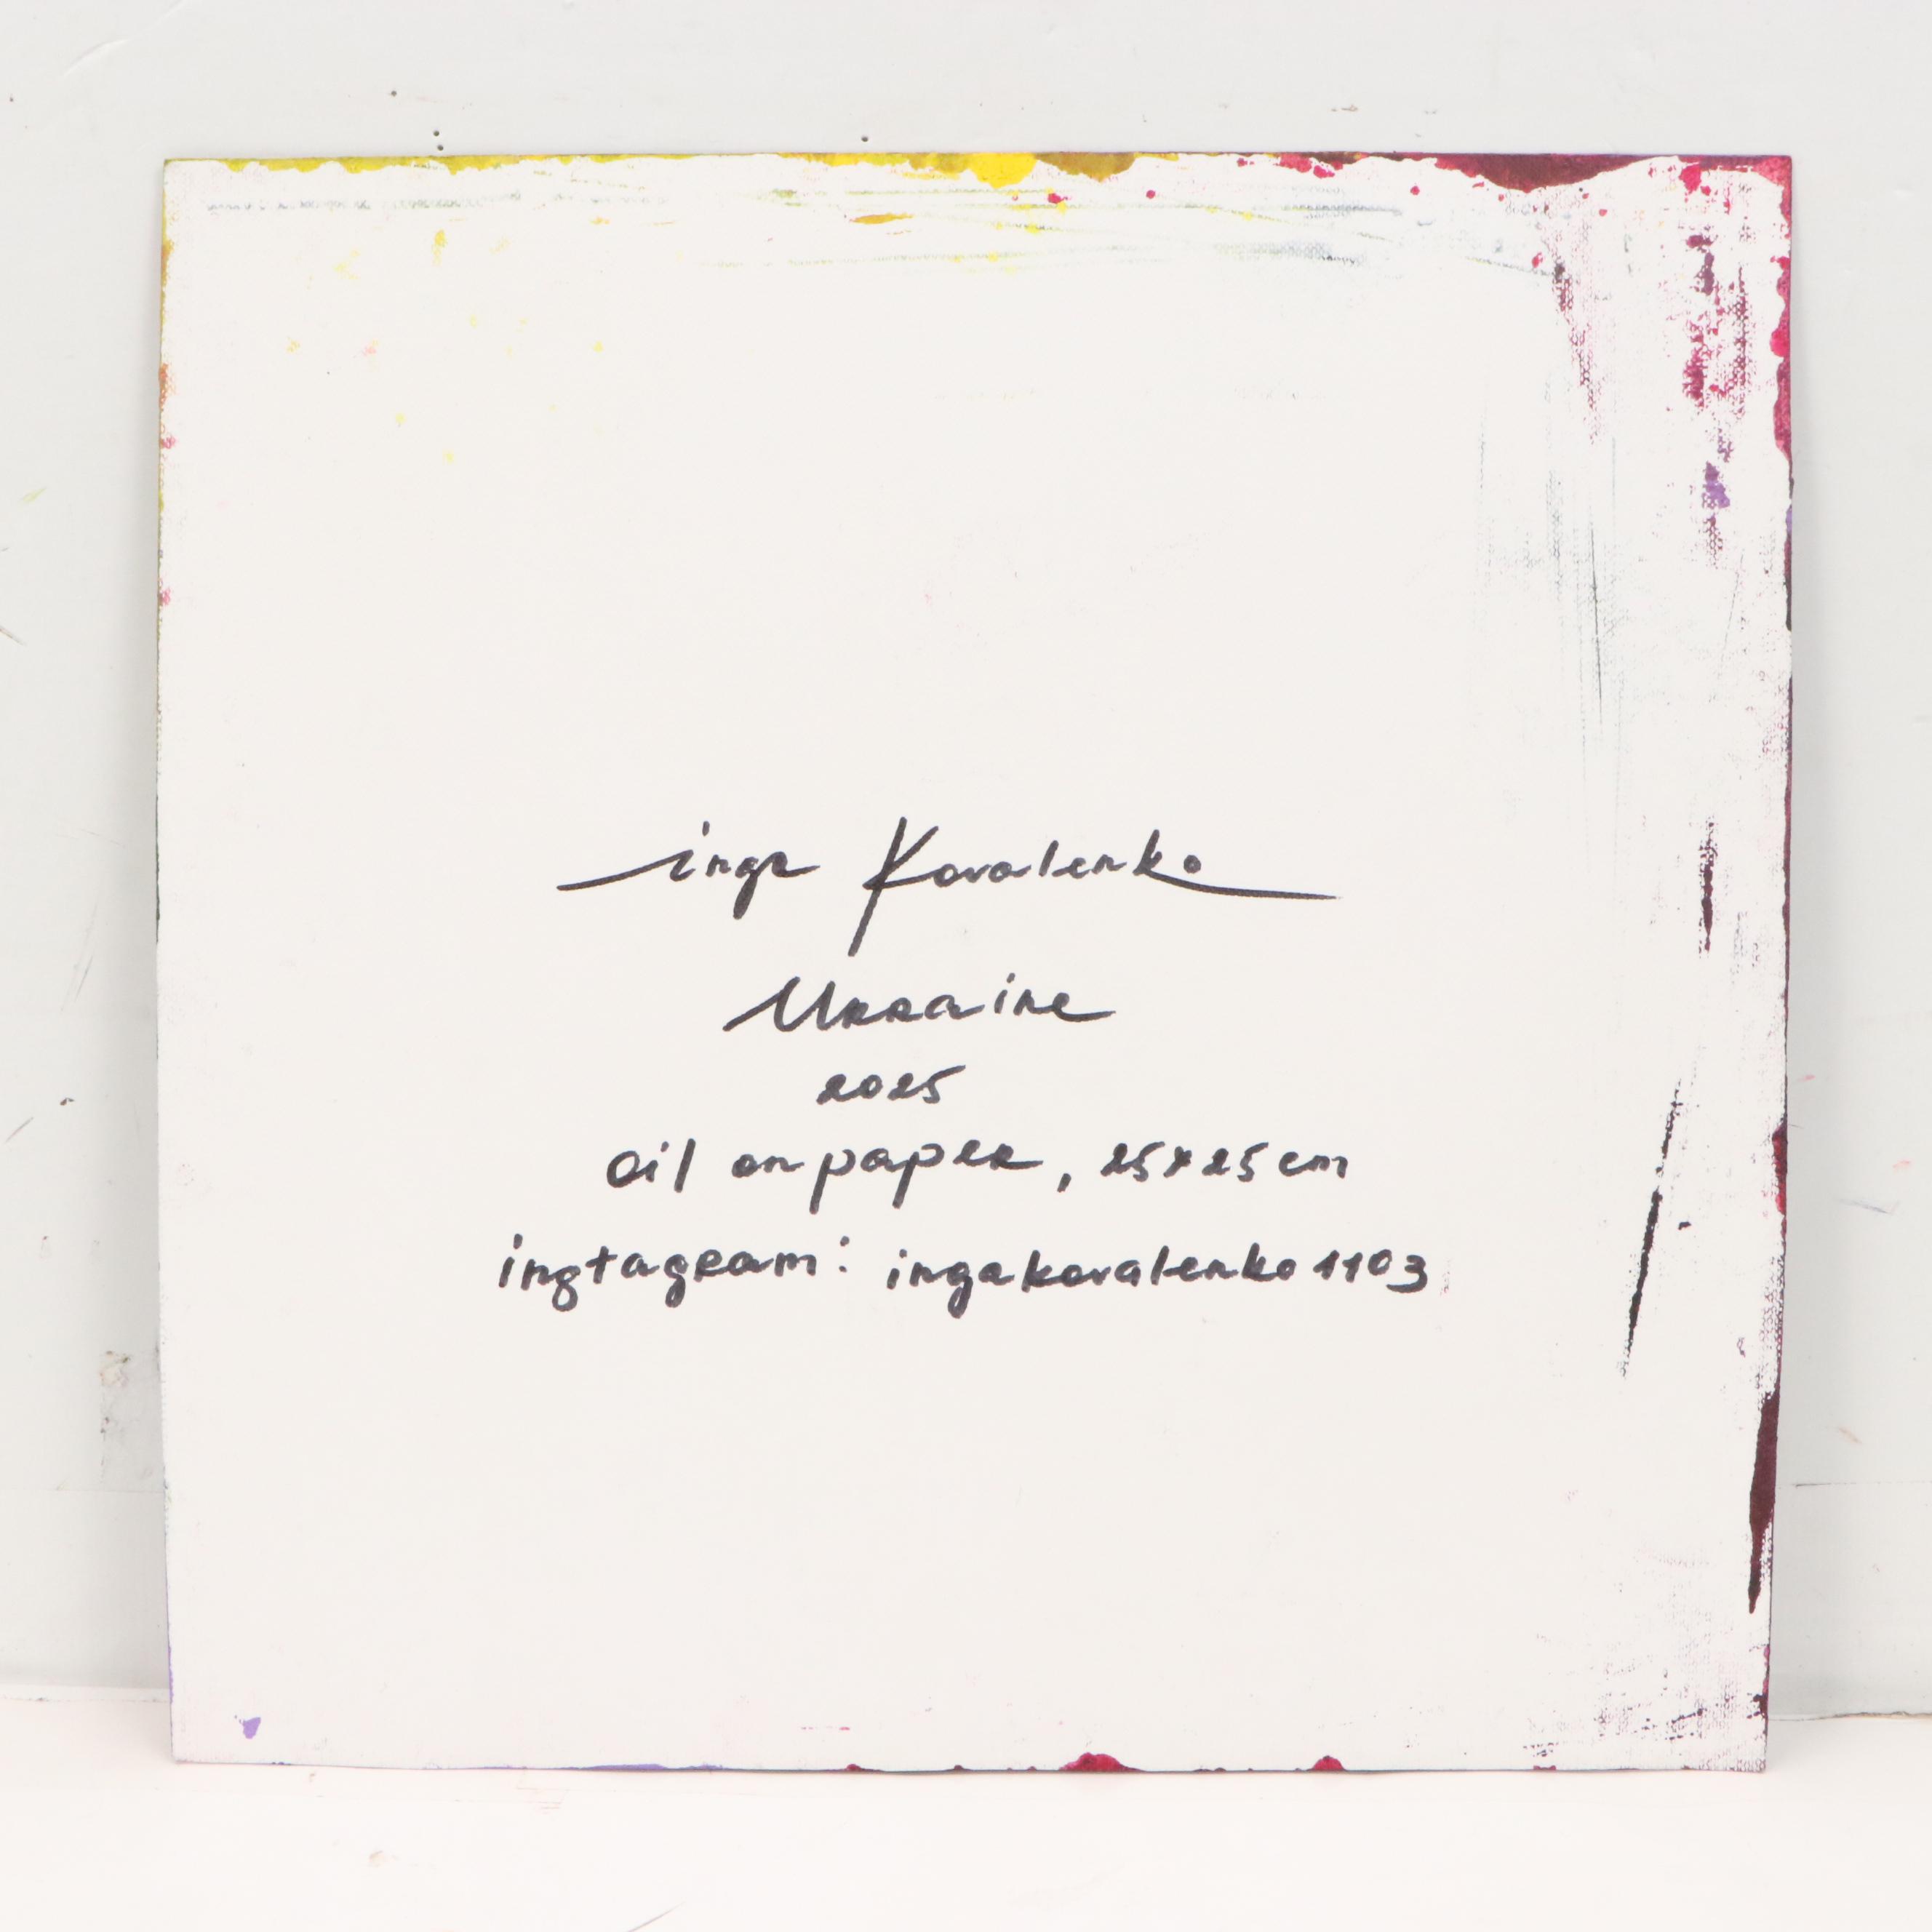 inga Kovalenko
Ukraine
2025
oil on paper, 25x25 cm
ingtagram: ingakovalenko1103